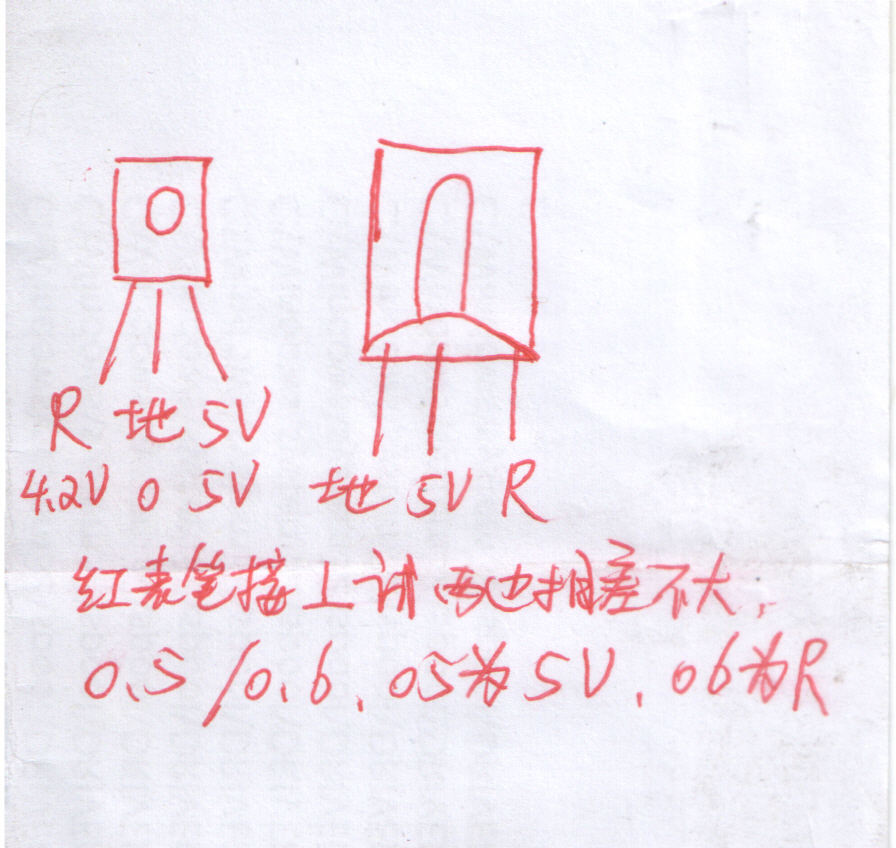 R 地 5V
4.2V 0 5V 地 5V R
红表笔接上 两边相差不大,
0.5/0.6,05为5V,06为R